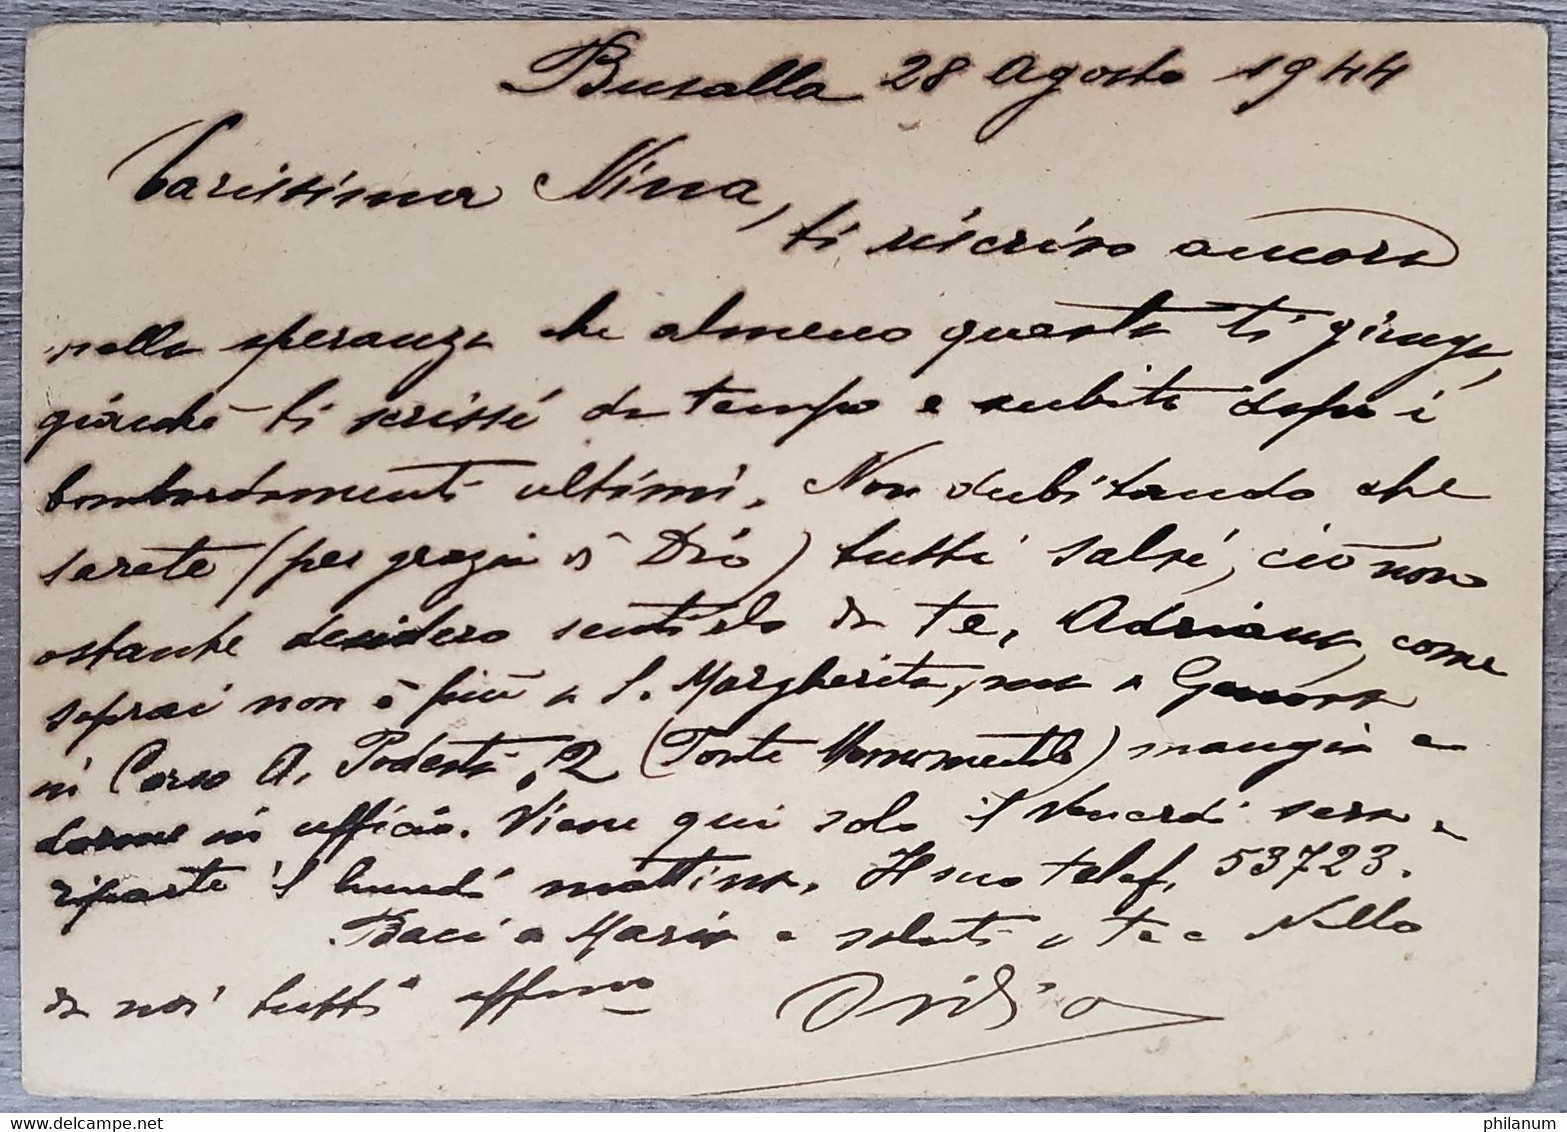 Busalla 28 Agosto 1944
Carissima Nina,
ti riscrivo ancora
nella speranza che almeno questa ti giunga,
giacchè ti scrissi da tempo e subito dopo i
bombardamenti ultimi. Non dubitando che
sarete (per grazia di Dio) tutti salvi, ciò non
ostante desidero sentirlo da te. Adriana, come
saprai non è più a S. Margherita, ma a Genova
in Corso A. Podestà, 2 (Ponte Monumentale) mangia e
dorme in ufficio. Viene qui solo il Venerdì sera e
riparte il lunedì mattina. Il suo telef. 53723.
Baci a Maria e saluti a te e Nello
da noi tutti affmo
Ovidio
philanum